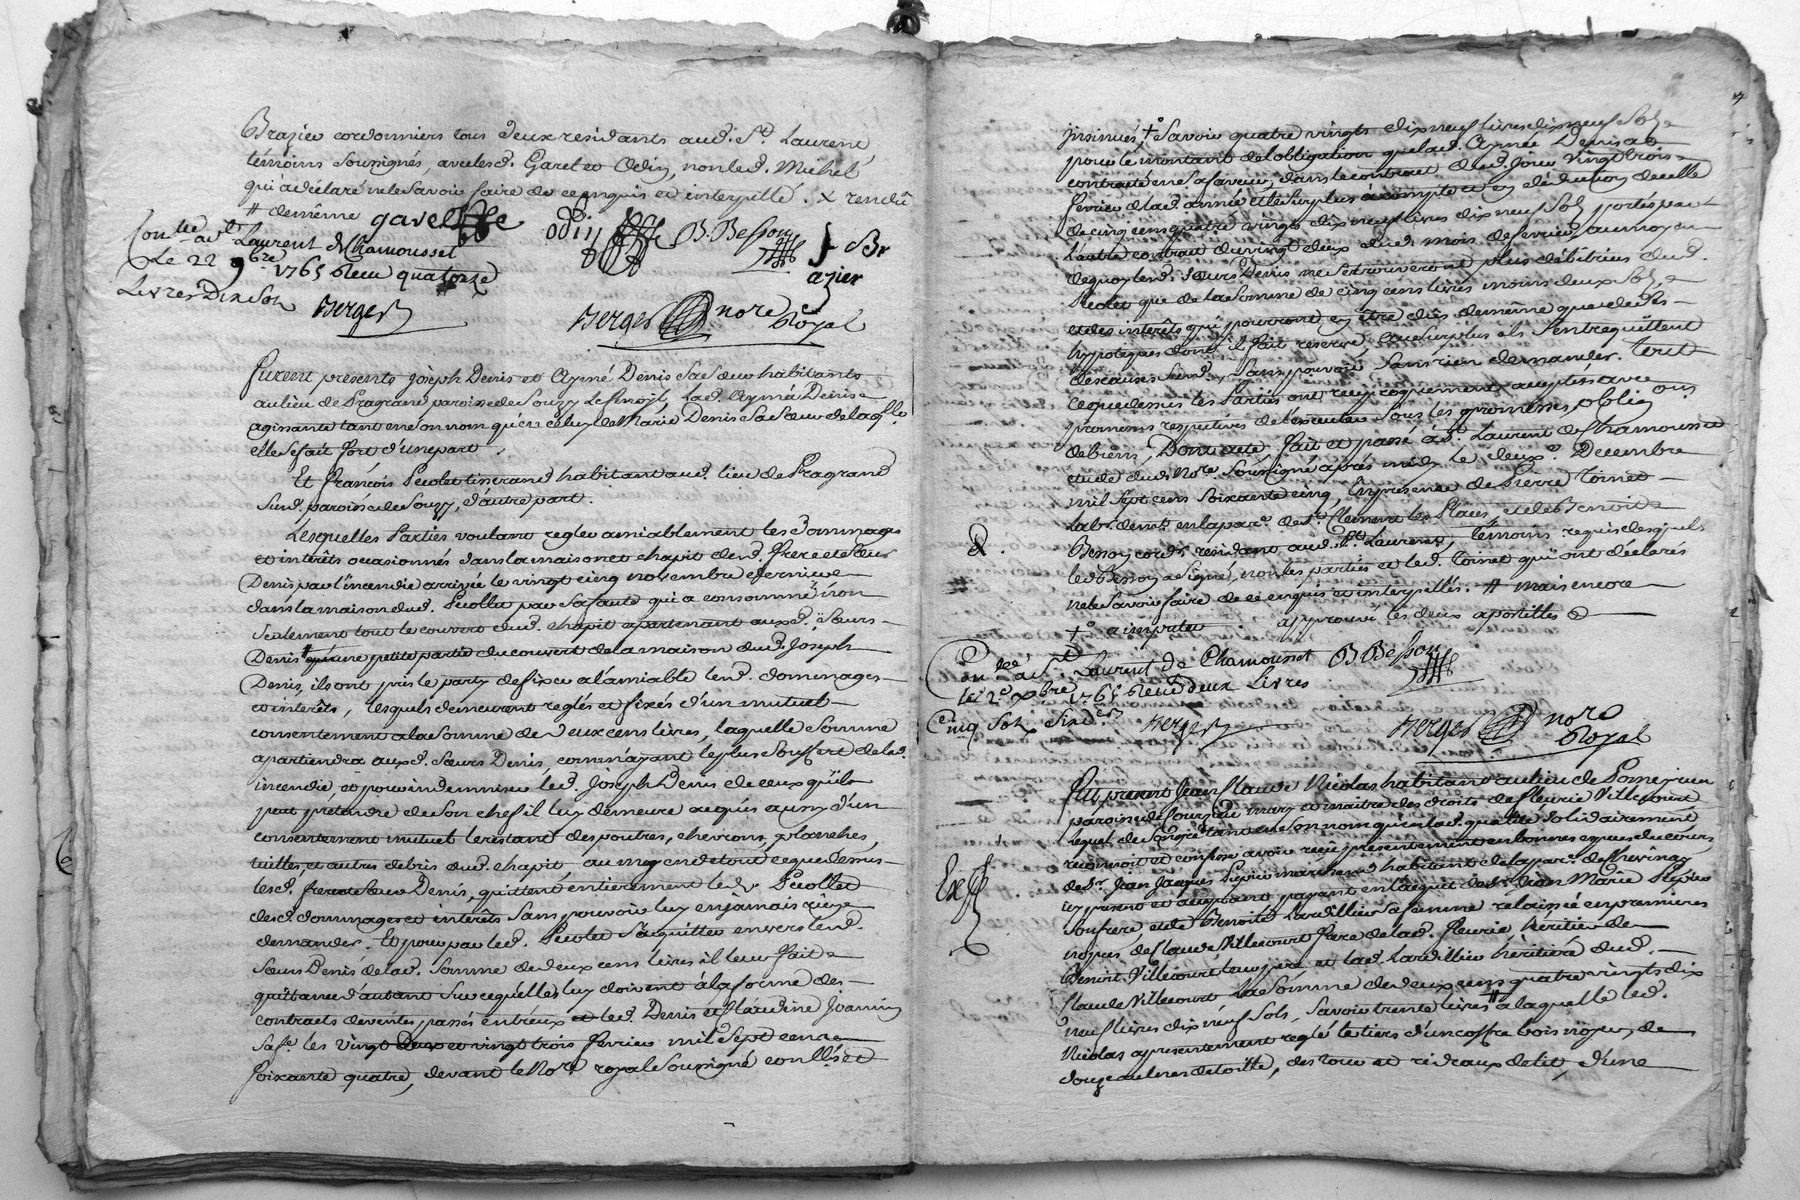 Brazier cordonniers tous deux residants aud. St. Laurent
témoins soussignés, avec lesd. Garel et Odin, non led. Michel
qui a déclaré ne le savoir faire de ce enquis et interpellé. x rendû
# de même gavel odin B. Besson Brazier
Con.lé à St Laurent de Chamousset
Le 22 9bre 1765 Reçu quatorze
Livres Dix Sols Berger
Berger nore Royal
furent présents joseph Denis et Aymé Denis sa sœur habitants
au lieu de Pragrand paroisse de Souzy Lad. Aymée Denis
agissante tant en son nom qu'en celuy de Marie Denis sa sœur de laqlle
elle se fait fort d'une part,
Et françois Pecolet tisserand habitant aud. lieu de Pragrand
sud. paroisse de Souzy, d'autre part.
Lesquelles Parties voulant regler amiablement les Dommages
et intérêts occasionnés dans la maison et chapit desd. frere et sœur
Denis par l'incendie arrivée le vingt cinq novembre dernier
dans la maison dud. Pecollet par sa faute qui a consommé non
seulement tout le couvert dud. chapit apartenant auxd. sœurs
Denis # qu'une petite partie du couvert de la maison dud. Joseph
Denis, ils ont pris le party de fixer à l'amiable lesd. dommages
et intérêts, lesquels demeurent reglés et fixés d'un mutuel
consentement a la somme de deux cens livres, laquelle somme
apartiendra auxd. sœurs Denis, comme ayant le plus souffert de lad.
incendie, et pour indemniser led. Joseph Denis de ceux qu'il
peut prétendre de son chef il luy demeure acquis aussy d'un
consentement mutuel le restant des poutres, chevrons, planches,
tuilles, et autres debris dud. chapit, au moyen de tout ce que dessus
lesd. frere et sœur Denis, quittent entierement led. Pecollet
desd. dommages et intérêts sans pouvoir luy en jamais rien
demander. Et pour par led. Pecolet s'acquitter envers lesd.
sœurs Denis de lad. somme de deux cens livres il leur fait
quittance d'autant sur ce qu'elles luy doivent à la forme des
contracts de ventes passés entr'eux et led. Denis et Claudine Joannin
sa fe. les vingt deux et vingt trois fevrier mil sept cent
soixante quatre, devant le Nore royal soussigné conllés et
insinués, +° Savoir quatre vingts dix neuf livres dix neuf sols
pour le montant de l'obligation que lad. Aymée Denis a
contracté en sa faveur, dans le contract dud. jour vingt trois
fevrier de lad. année et le surplus à compte et en déduction de celle
de cinq cens quatre vingts dix neuf livres dix neuf sols portés par
l'autre contract du vingt deux dud. mois de fevrier, au moyen
de quoy lesd. sœurs Denis ne se trouveront plus débitrices dud.
Pecolet que de la somme de cinq cens livres moins deux sols,
et des intérêts qui pourront en être dûs de même que de ses
hypoteques dont il fait reserve, au surplus ils s'entrequittent
des causes susd. sans pouvoir s'en rien demander. tout
ce que dessus les Parties ont reciproquement accepté avec
promesses respectives de l'executer sous les promesses obligons
de biens, Dont acte, fait et passé à St. Laurent de Chamousset
etude dud. Nore. soussigné après midy le deuxe. Decembre
mil sept cens soixante cinq, en presence de Pierre Toinet
labr. demt. en la parr. de St. Clement les Places, et de Benoit
Besson cordr. residant aud. St. Laurent, témoins requis desquels
led. Besson a signé, non les parties et led. Toinet qui ont déclarés
ne le savoir faire de ce enquis et interpellés. # mais encore
+° a imputer approuvé les deux apostilles
Con.lé à St Laurent de Chamousset B Besson
le 2e Xbre 1765 Reçu deux Livres
Cinq Sols Six ds. Berger
Berger nore Royal
Fut present Jean Claude Nicolas habitant au lieu de Pomejrieu
paroisse de Courzieu mary et maitre des droits de fleurie Villecourt
lequel de son gré tant en son nom qu'en lad. qualité solidairement
reconnoit et confesse avoir reçu presentement en bonnes especes du cours,
de Sr. Jean Jacques Pupier marchand habitant de la parr. de Chevinay
icy present et acceptant payant en l'acquit de Sr. Jean Marie Pupier
Exp
son frere et de Benoite Lardillier sa femme relaissée en premieres
nopces de Claude Villecourt frere de lad. fleurie héritier de
Benoit Villecourt leur pere et lad. Lardillier héritière dud.
Claude Villecourt la somme de deux cens quatre vingts dix
neuf livres dix neuf sols, savoir trente livres # à laquelle led.
Nicolas a presentement reglé le tiers d'un coffre bois noyer, de
douze aulnes de toille, des tour et rideaux de lit, d'une